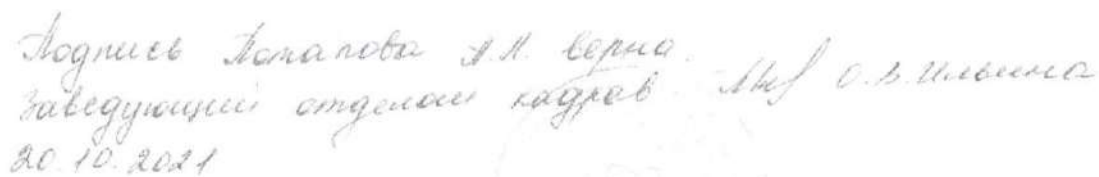 Подпись Потапова А.П. верна.
Заведующий отделом кадров О.В. Ильина
20.10.2021